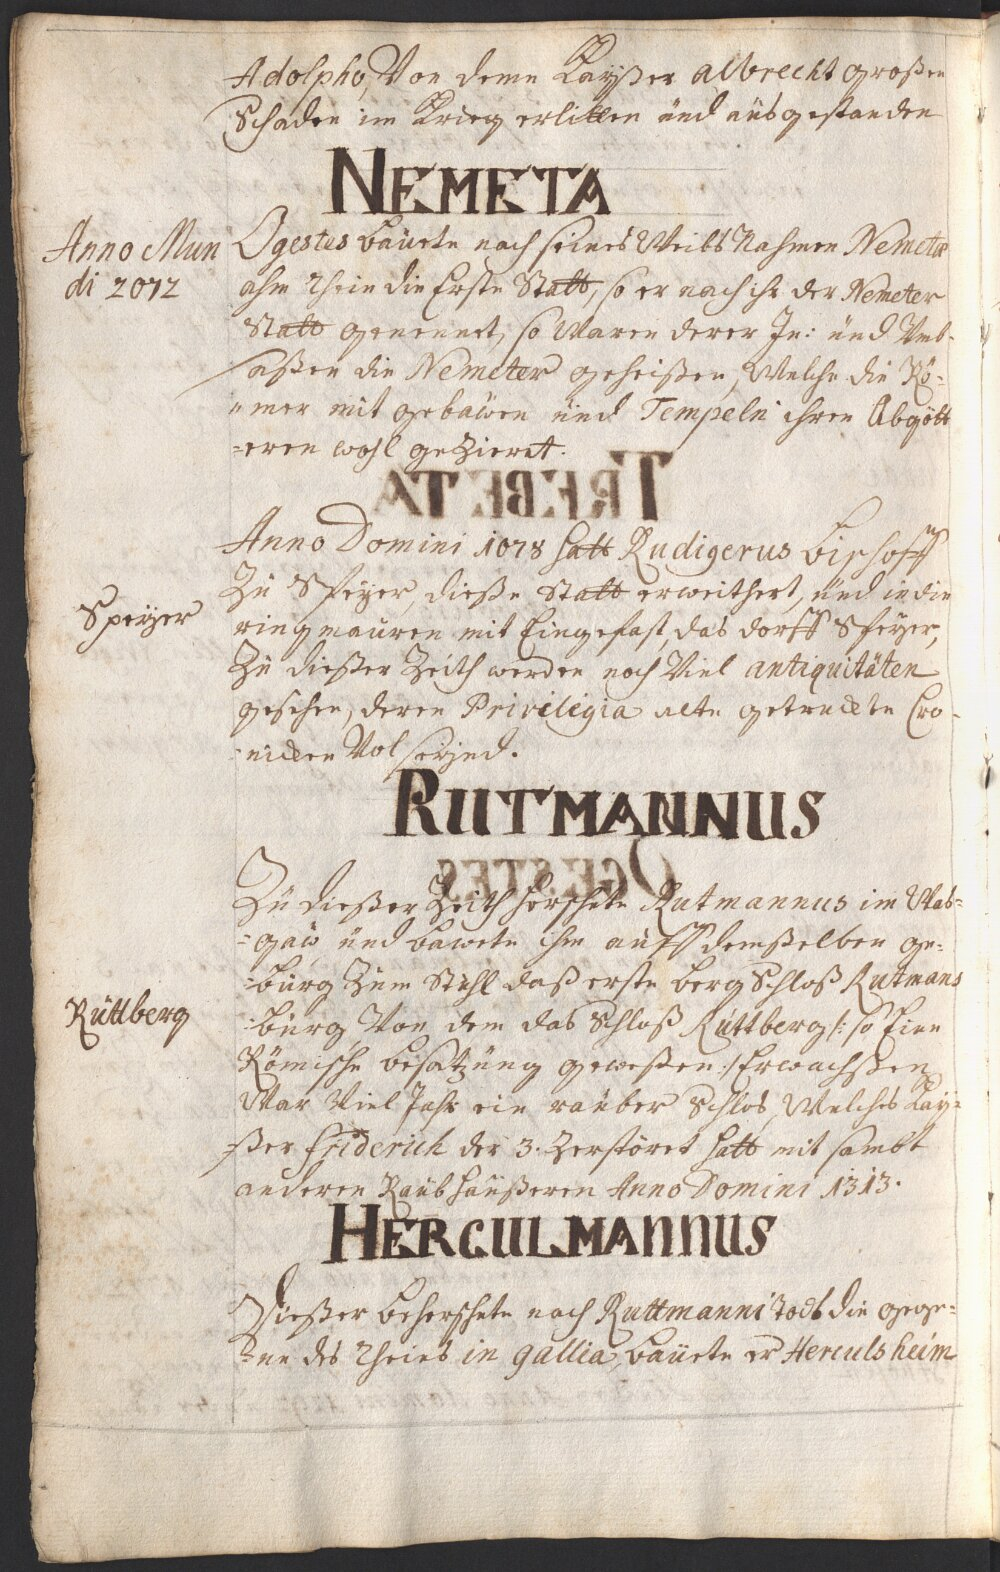 Adolpho, Von dem Kayßer albrecht großen
Schaden im Krieg erlitten und ausgestanden
NEMETA
Anno Mun
di 2072
Ogestes bauete nach seines Weibs Nahmen Nemetæ
ahm Rhein die Erste Statt, so er nach ihr der Nemeter
Statt genennet, so Waren derer In: und Umb-
saßen die Nemeter geheißen, Welche die Rö-
mer mit gebäwen und Tempeln ihren Abgött
=eren wohl geZieret.
Speyer
Anno Domini 1078 hatt Rudigerus bischoff
Zu Speyer, dieße Statt erweithert, und in die
ringmauren mit Eingefast, das dorff Speyer,
Zu dießer Zeith werden noch Viel antiquitäten
gesehen, deren Privilegia alte getruckte Cro-
nicken Vol seynd.
RUTMANNUS
Zu dießer Zeith herschete Rutmannus im Was=
=gaw und bawete ihm auff demßelben ge=
=bürg Zum Stuhl daß erste berg Schloß Rutmans
=burg, Von dem das Schloß Ruttberg /: so Eine
Römische besatzung geweßen :/ Erwachßen
Rüttberg
War Viel Jahr ein rauber Schlos, Welches Kay=
ßer friderich der 3. Zerstöret hatt mit sambt
anderen Raubhäußeren Anno Domini 1313.
HERCULMANNUS
Dießer beherschete nach Ruttmanni Todt die gege=
=ne des Rheins in gallia, bauete er Herculsheim